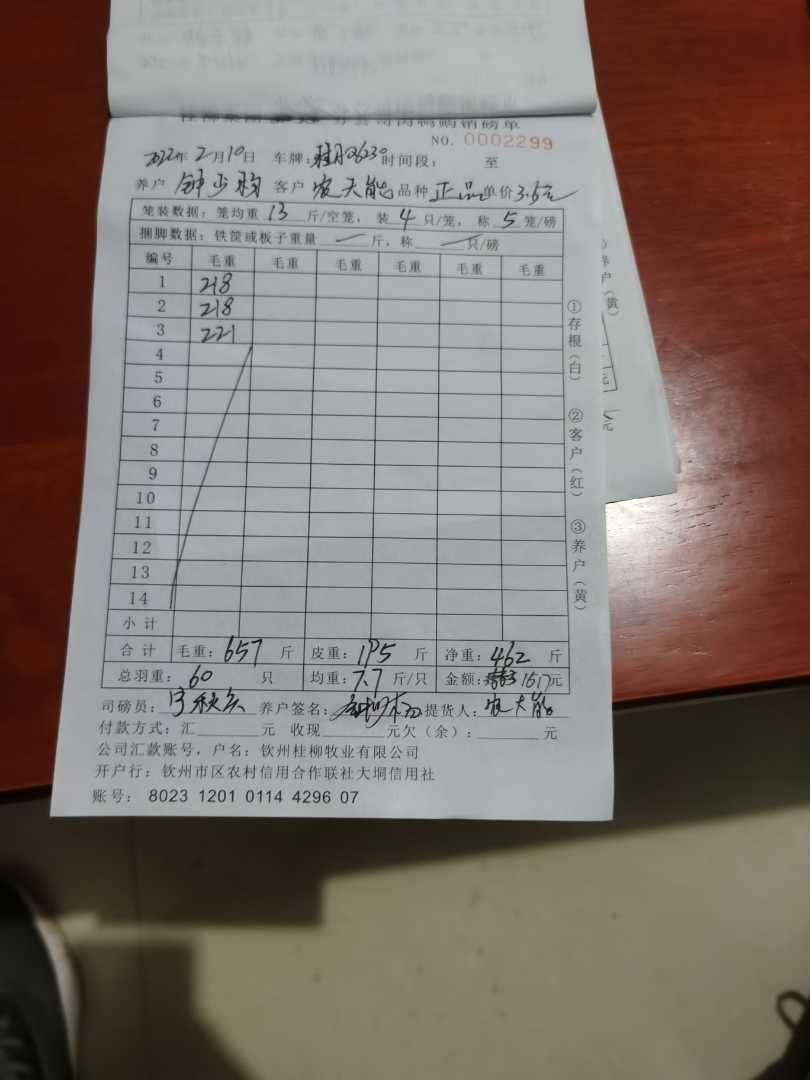 肉鸭购销磅单
NO. 0002299
2022年 2月10日 车牌:桂 时间段: 至
养户 钟少 客户 农天能 品种 正品 单价 3.5元
笼装数据: 笼均重 13 斤/空笼, 装 4 只/笼, 称 5 笼/磅
捆脚数据: 铁筐或板子重量 — 斤, 称 — 只/磅
编号 毛重 毛重 毛重 毛重 毛重 毛重
1 218
2 218
3 221
4
5
6
7
8
9
10
11
12
13
14
小计
合计 毛重: 657 斤 皮重: 195 斤 净重: 462 斤
总羽重: 60 只 均重: 7.7 斤/只 金额: 1617元
司磅员: 养户签名: 提货人: 农天能
付款方式: 汇 元 收现 元欠(余): 元
公司汇款账号, 户名: 钦州桂柳牧业有限公司
开户行: 钦州市区农村信用合作联社大垌信用社
账号: 8023 1201 0114 4296 07
①存根(白) ②客户(红) ③养户(黄)
养户(黄)
元